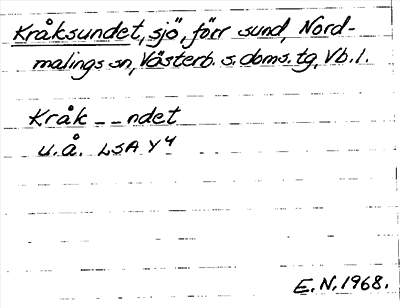 Kråksundet, sjö, förr sund, Nord-
malings sn, Västerb. s. doms. tg, Vb. l.
Kråk _ _ ndet
u.å. LSA Y4
E.N. 1968.